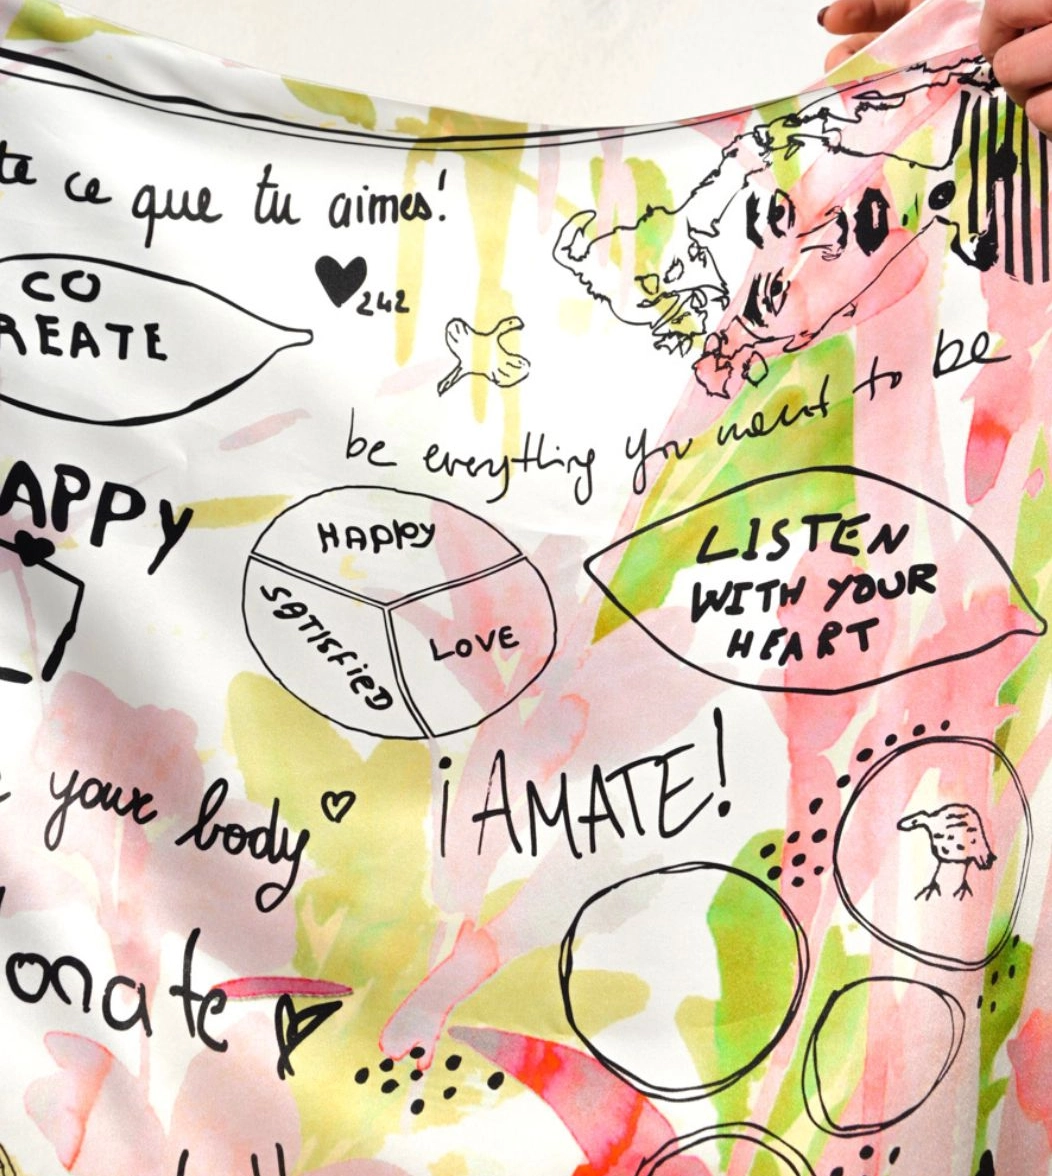 te ce que tu aimes!
CO
REATE
242
be everything you want to be
APPY
HAPPY
SATISFIED
LOVE
LISTEN
WITH YOUR
HEART
your body
¡AMATE!
onate